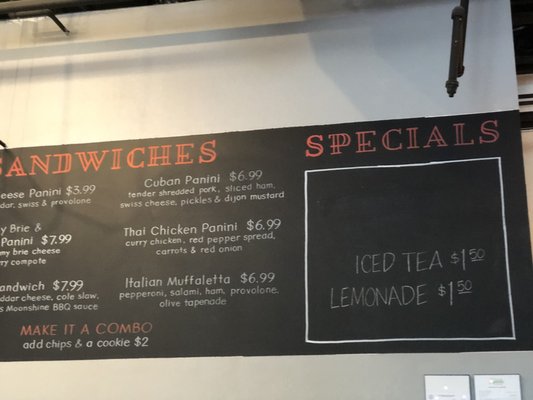 SANDWICHES
eese Panini $3.99
dar, swiss & provolone
y Brie &
Panini $7.99
my brie cheese
rry compote
andwich $7.99
ddar cheese, cole slaw,
s Moonshine BBQ sauce
Cuban Panini $6.99
tender shredded pork, sliced ham,
swiss cheese, pickles & dijon mustard
Thai Chicken Panini $6.99
curry chicken, red pepper spread,
carrots & red onion
Italian Muffaletta $6.99
pepperoni, salami, ham, provolone,
olive tapenade
MAKE IT A COMBO
add chips & a cookie $2
SPECIALS
ICED TEA $1.50
LEMONADE $1.50